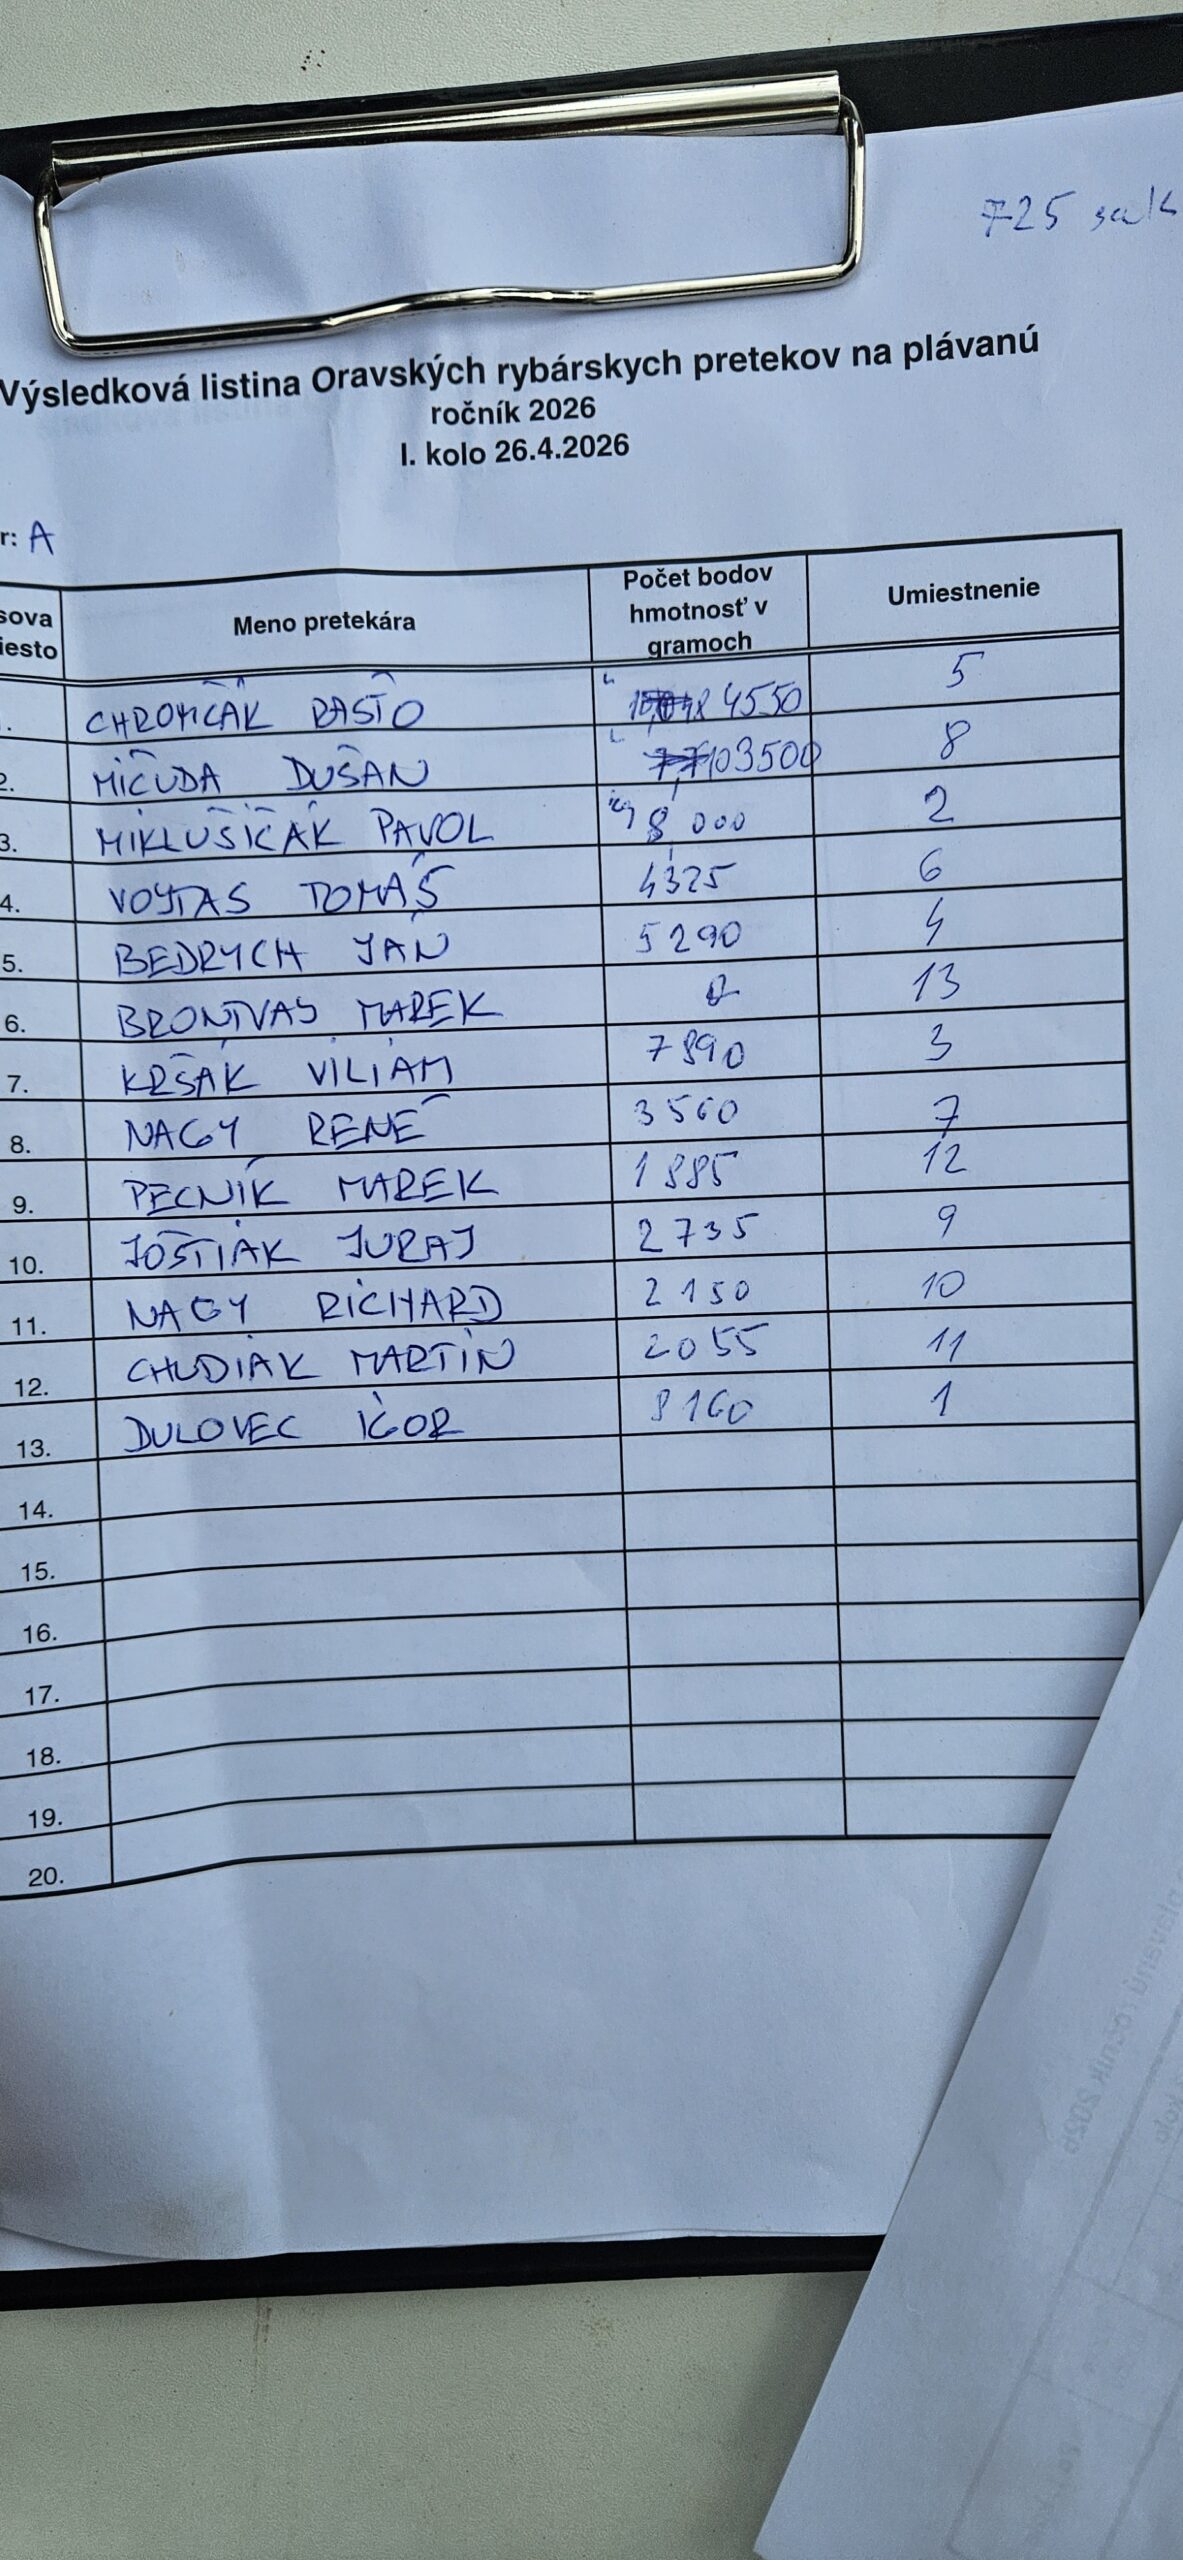 725 sak
Výsledková listina Oravských rybárskych pretekov na plávanú
ročník 2026
I. kolo 26.4.2026
r: A
sova iesto Meno pretekára Počet bodov hmotnosť v gramoch Umiestnenie
. CHROMČÁK RASŤO 4550 5
2. MIČUDA DUŠAN 3500 8
3. MIKLUŠIČÁK PAVOL 8 000 2
4. VOJTAS TOMÁŠ 4325 6
5. BEDRYCH JÁN 5290 4
6. BRONTVAS MAREK 0 13
7. KRŠÁK VILIAM 7890 3
8. NAGY RENÉ 3560 7
9. PECNÍK MAREK 1885 12
10. JOŠTIAK JURAJ 2735 9
11. NAGY RICHARD 2150 10
12. CHUDIAK MARTIN 2055 11
13. DULOVEC IGOR 8160 1
14.
15.
16.
17.
18.
19.
20.